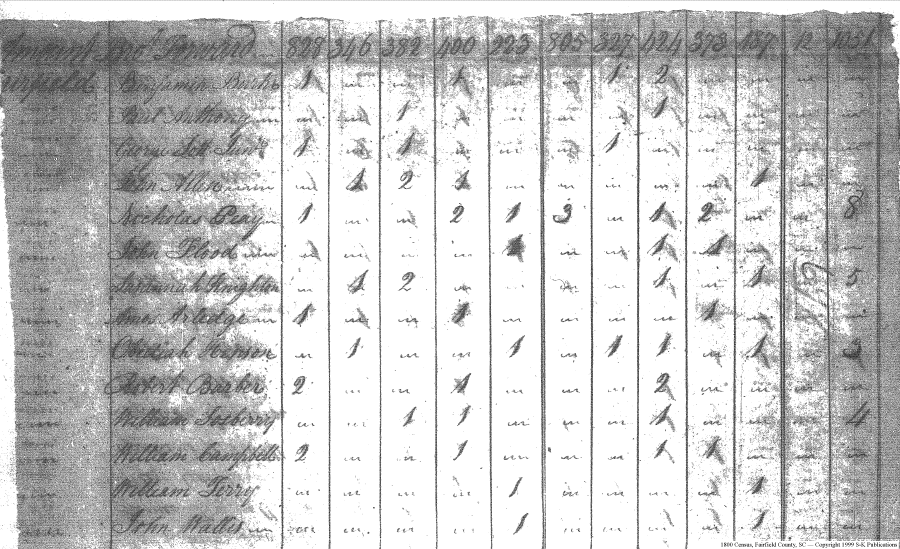 Amount Bro.t Forward 828 346 382 400 223 805 327 424 373 157 12 1051
Fairfield Benjamin 1 " " 1 " " 1 2 " " " "
" Burl Anthony " " 1 " " " " 1 " " " "
" George Lott 1 " 1 " " " 1 " " " " "
" John Allen " 1 2 1 " " " " " 1 " "
" Nicholas Peay 1 " " 2 1 3 " 1 2 " " 8
" John Flood " " " " 1 " " 1 1 " " "
" Jeremiah " 1 2 " " " " 1 " 1 " 5
" Ama Arledge 1 " " 1 " " " " 1 " " "
" Obediah " 1 " " 1 " 1 1 " 1 " 3
" Robert Barber 2 " " 1 " " " 2 " " " "
" William " " 1 1 " " " 1 " " " 4
" William Campbell 2 " " 1 " " " 1 1 " " "
" William Terry " " " " 1 " " " " 1 " "
" John Wallis " " " " 1 " " " " 1 " "
1800 Census, Fairfield County, SC — Copyright 1999 S-K Publications